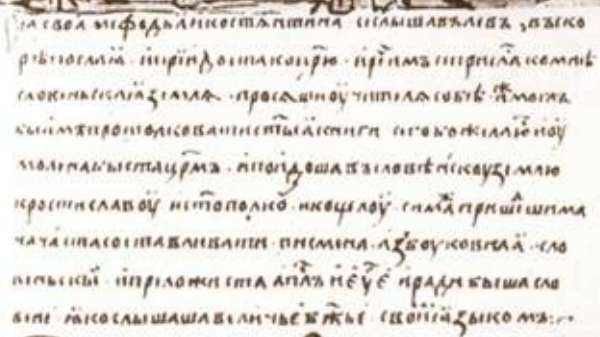 на своя меѳодьа и костянтина сеслышавълевъ , въско
рѣ посла я · и прїидоста ко цр҃ю · и реⷱ҇ имъ се прислⷧ҇а комнѣ
словѣньскаа земля · просящи оучителя собѣ · иже моглъ
бы имъ протолковати ст҃ыа книги · сего бо желаю и оу
молена быста цр҃мъ · и поидоша въ словѣньскоу землю
к ростиславоу и ст҃ополкоу · и коцелоу · симаⷤ пришеⷣшима
начаста составливати писмена · азбоуковнаа · сло
веньскы · и приложиста апⷭ҇лъ и еуⷢ҇е и ради быша сло
вѣне · яко слышаша величье бж҃ье своиⷨ языкомъ :·